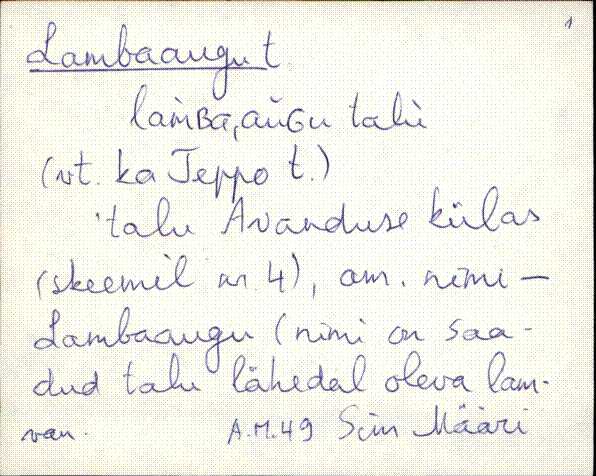 1
Lambaaugu t
lamʙa,auɢu talu
(vt. ka Teppo t.)
talu Avanduse külas
(skeemil nr. 4), am. nimi —
Lambaaugu (nimi on saa-
dud talu lähedal oleva lam-
A.M.49 Siim Määri